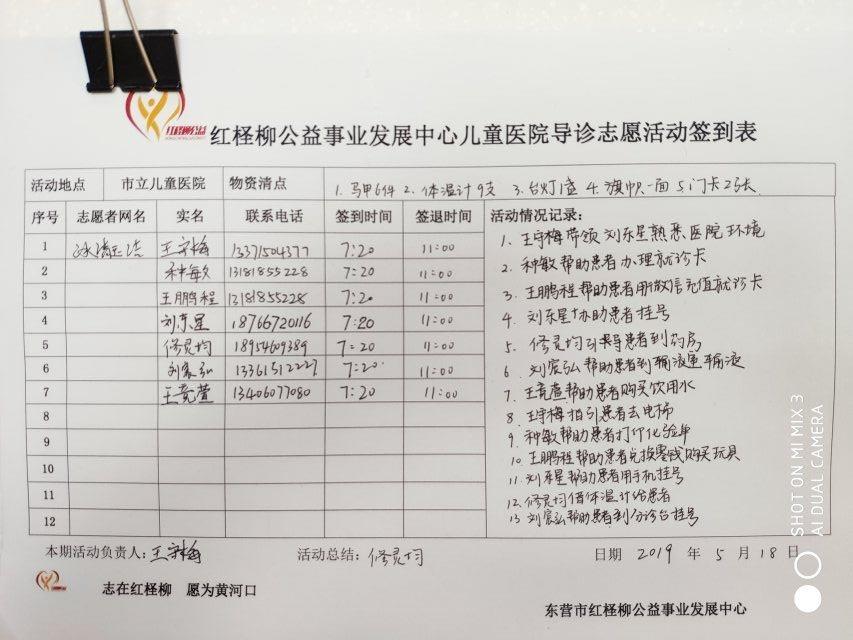 红柽柳公益
红柽柳公益事业发展中心儿童医院导诊志愿活动签到表
活动地点 市立儿童医院 物资清点 1. 马甲6件 2. 体温计9支 3. 台灯1盏 4. 旗帜一面 5. 门卡2张
序号 志愿者网名 实名 联系电话 签到时间 签退时间 活动情况记录:
1 冰清玉洁 王守梅 13371504377 7:20 11:00
2 种敏 13181855228 7:20 11:00
3 王鹏程 13181855228 7:20 11:00
4 刘东星 18766720116 7:20 11:00
5 修灵均 18954609389 7:20 11:00
6 刘宸弘 13361512227 7:20 11:00
7 王竞萱 13406077080 7:20 11:00
8
9
10
11
12
1. 王守梅带领刘东星熟悉医院环境
2. 种敏帮助患者办理就诊卡
3. 王鹏程帮助患者用微信充值就诊卡
4. 刘东星协助患者挂号
5. 修灵均引导患者到药房
6. 刘宸弘帮助患者到输液室输液
7. 王竞萱帮助患者购买饮用水
8. 王守梅指引患者去电梯
9. 种敏帮助患者打印化验单
10. 王鹏程帮助患者兑换零钱购买玩具
11. 刘东星帮助患者用手机挂号
12. 修灵均借体温计给患者
13. 刘宸弘帮助患者到分诊台挂号
本期活动负责人:王守梅 活动总结:修灵均 日期 2019 年 5 月 18 日
志在红柽柳 愿为黄河口
东营市红柽柳公益事业发展中心
SHOT ON MI MIX 3
AI DUAL CAMERA